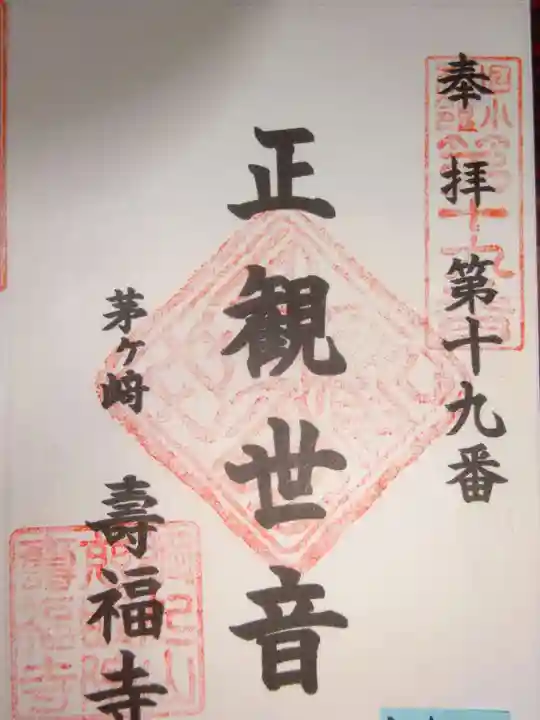 奉拝 第十九番
正観世音
茅ヶ﨑 壽福寺